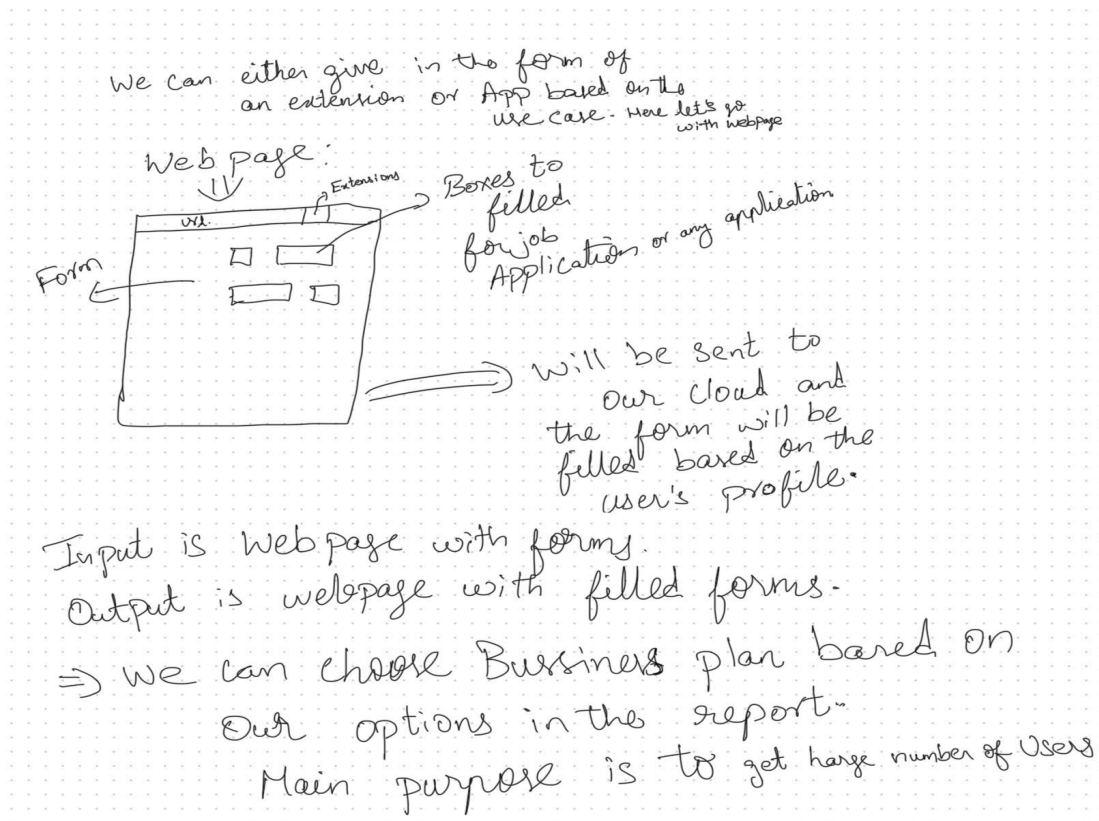 We can either give in the form of
an extension or App based on the
use case. Here let's go
with webpage
Web page:
Extensions
url.
Boxes to
filled
for job
Application or any application
Form
Will be sent to
our cloud and
the form will be
filled based on the
user's profile.
Input is Web page with forms.
Output is webpage with filled forms.
⇒ We can choose Bussiness plan based on
our options in the report.
Main purpose is to get harge number of Users